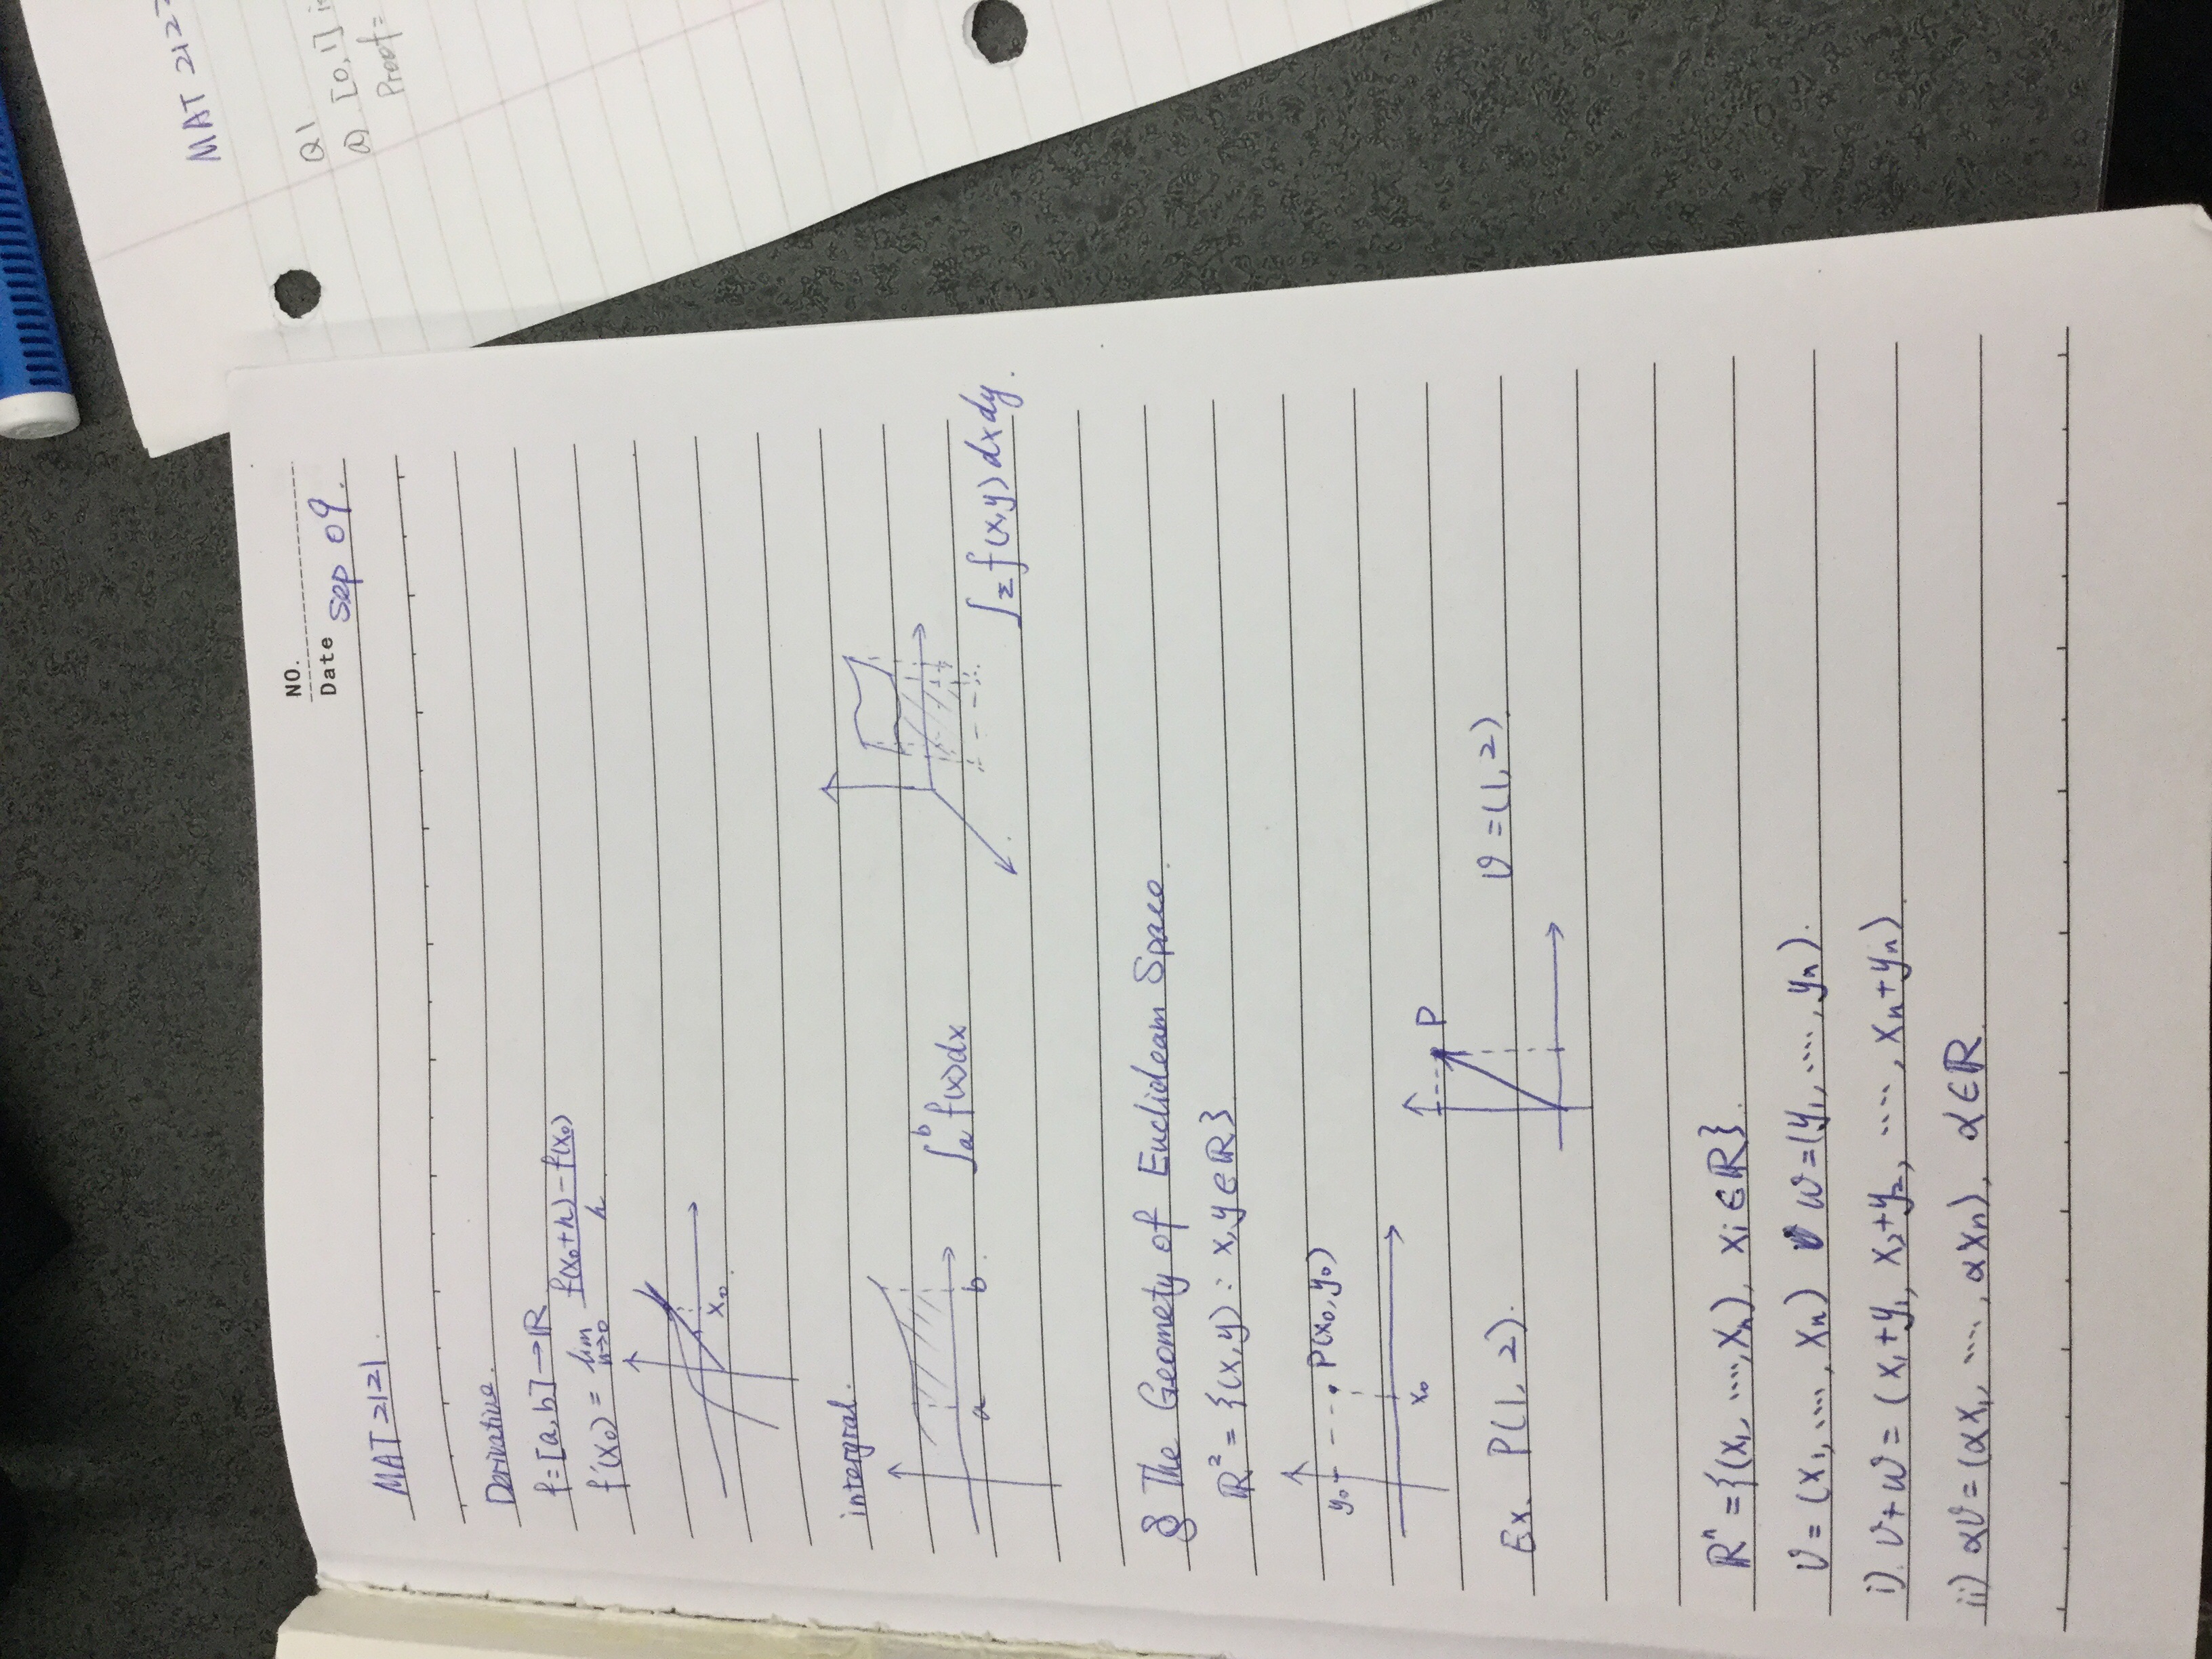 MAT 2127
Q1
a) [0,1] i
Proof:
NO.
Date Sep 09.
MAT 2121.
Derivative.
f=[a,b]→ℝ
f'(x₀) = lim h→0 f(x₀+h)-f(x₀) / h
x₀
intergral.
a b
∫ₐᵇ f(x)dx
∫Σ f(x,y)dxdy.
§ The Geomety of Euclideam Space.
ℝ² = {(x,y) : x,y∈ℝ}
y₀ P(x₀,y₀)
x₀
Ex. P(1,2).
P
v=(1,2)
ℝⁿ={(x₁,....,xₙ), xᵢ∈ℝ}.
v=(x₁,....,xₙ) w=(y₁,....,yₙ).
i). v+w=(x₁+y₁, x₂+y₂, ....., xₙ+yₙ)
ii) αv=(αx₁, ....., αxₙ), α∈ℝ.